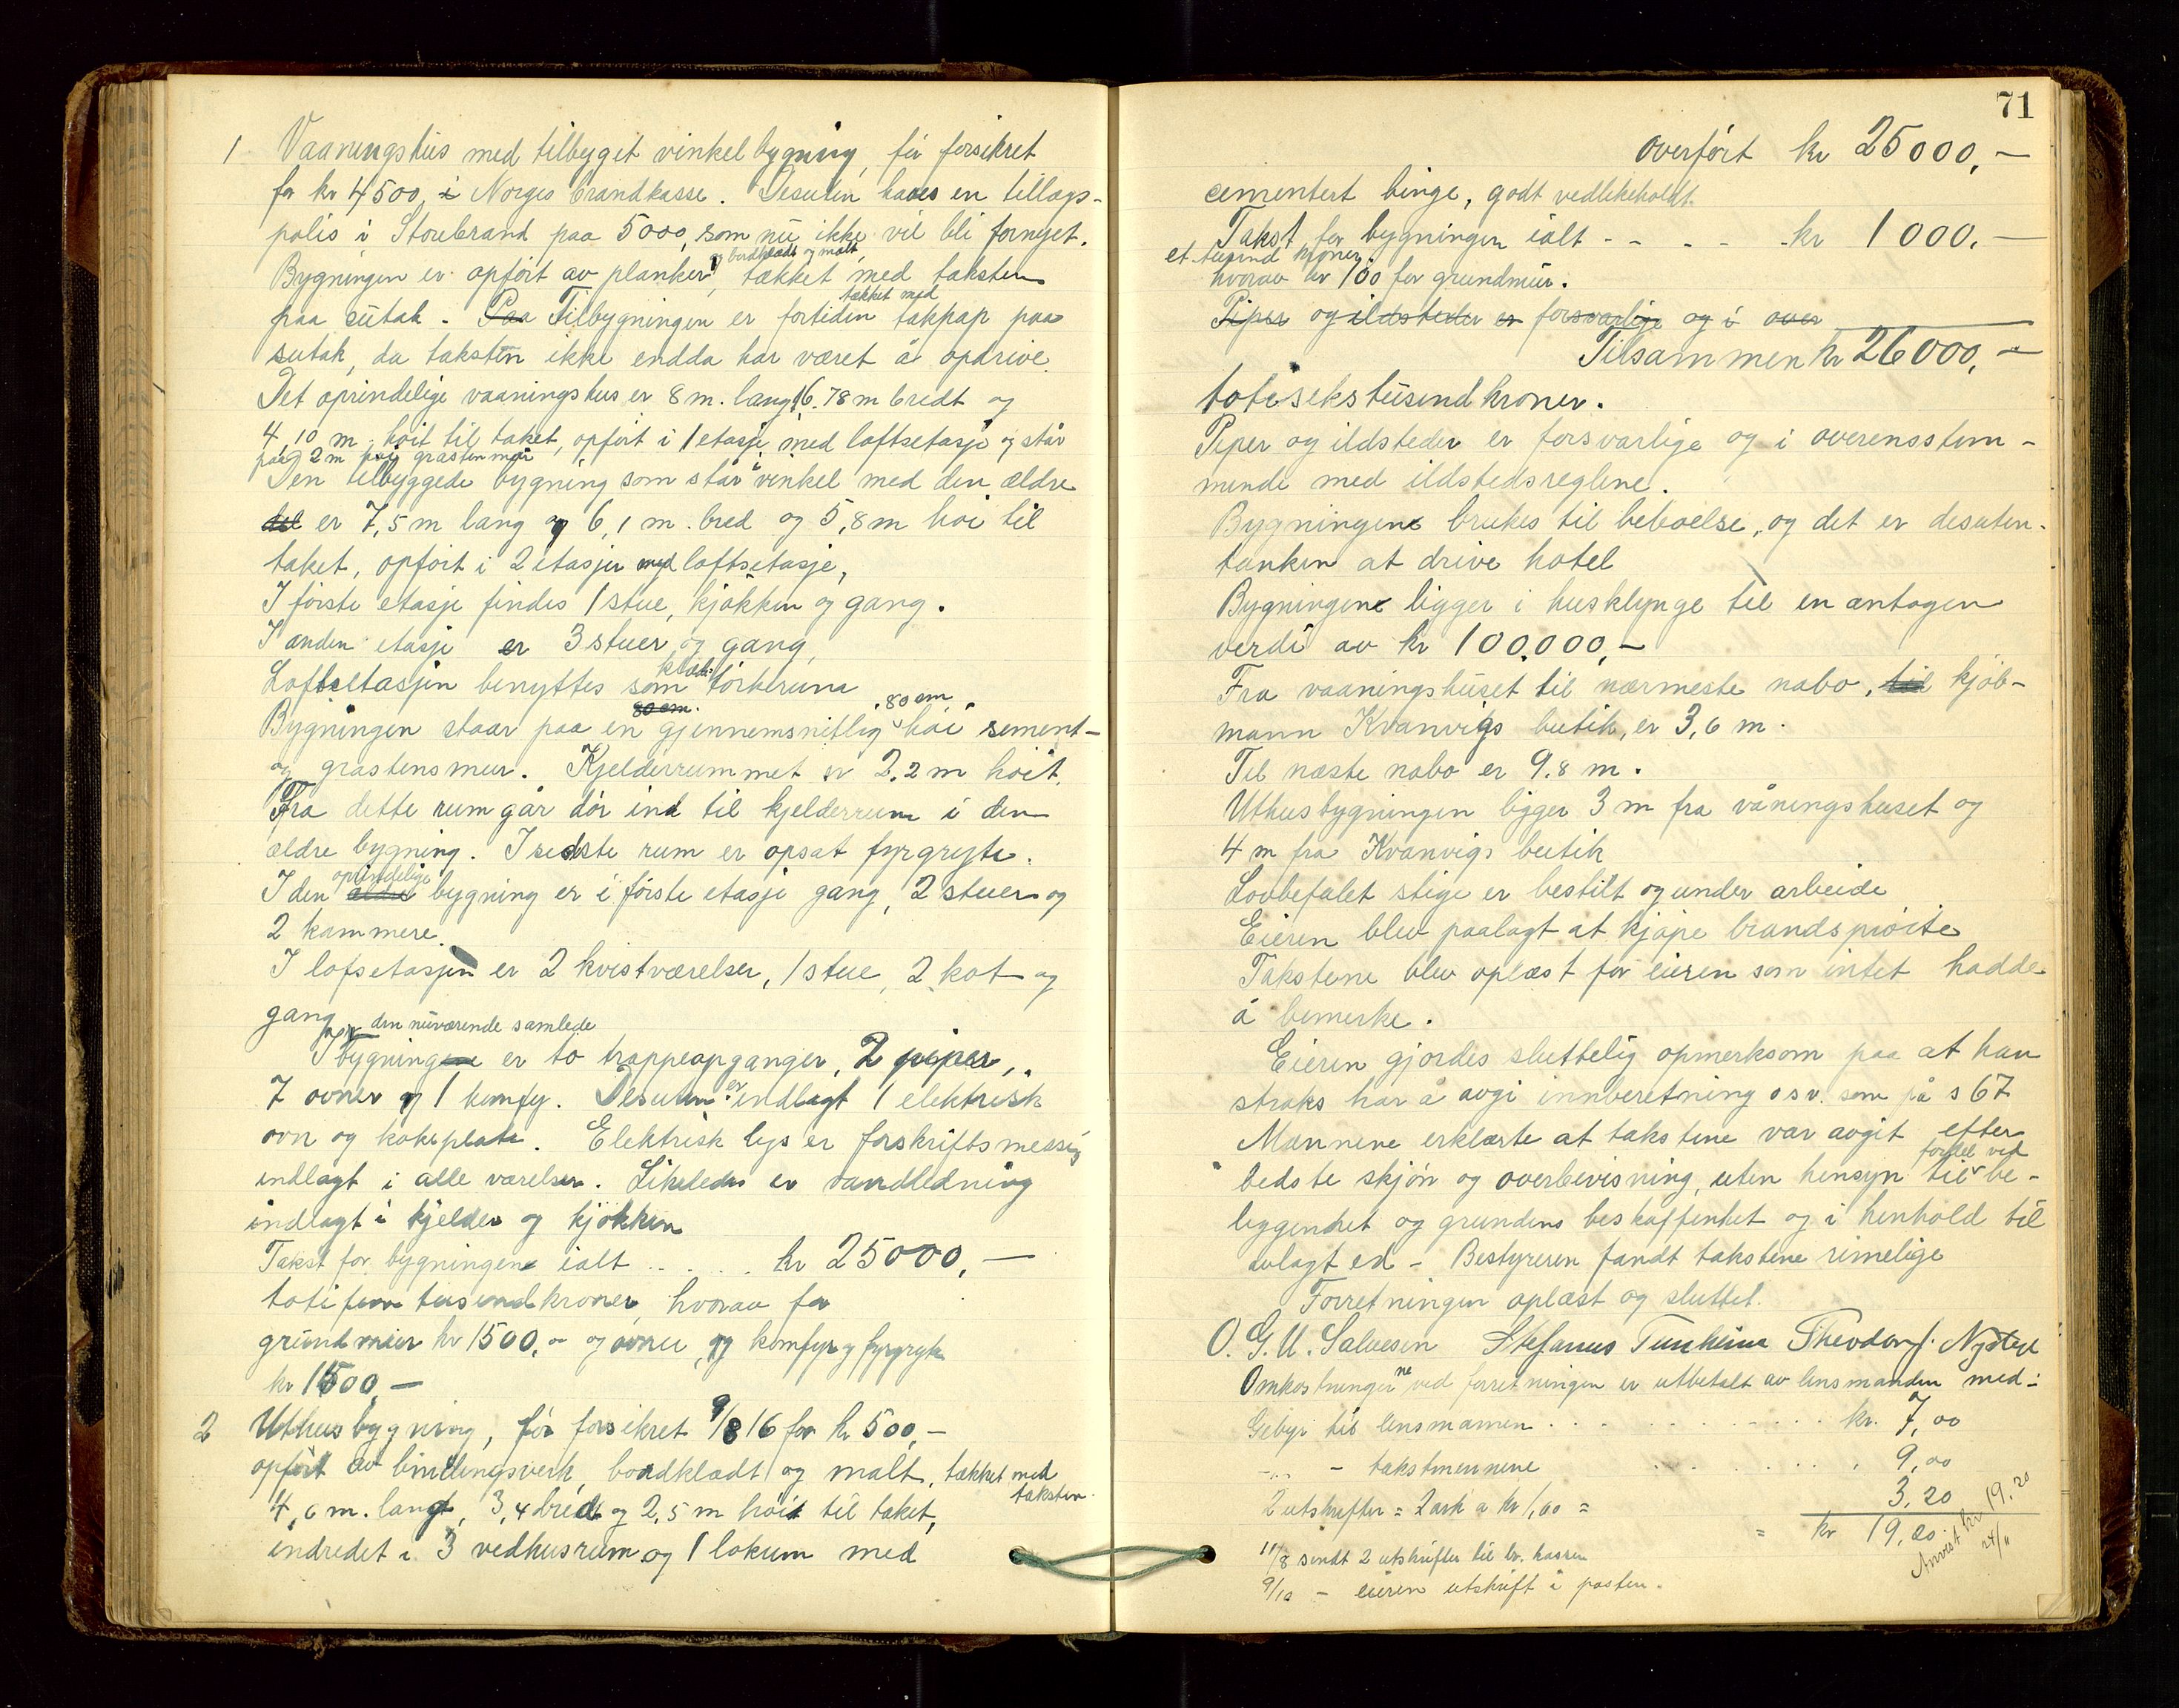 1 Vaaningshus med tilbyget vinkelbygning, før forsikret
for kr 4500, i Norges brandkasse. Desuten haves en tillægs-
polis i Storebrand paa 5000, som nu ikke vil bli fornyet.
og bordklædt og malt
Bygningen er opført av planker, tækket med taksten
tækket med
paa sutak - Paa Tilbygningen er fortiden takpap paa
sutak, da taksten ikke endda har været å opdrive.
Det oprindelige vaaningshus er 8 m. langt, 6.78 m bredt og
4,10 m. høit til taket, opført i 1 etasje med loftsetasje og står
paa 2 m høi grastenmur
Den tilbyggede bygning som står i vinkel med den ældre
del er 7,5 m lang og 6,1 m. bred og 5,8 m høi til
taket, opført i 2 etasjer med loftsetasje,
I første etasje findes 1 stue, kjøkken og gang.
I anden etasje er 3 stuer og gang,
klæde-
Loftsetasjen benyttes som tørkerum
80 cm. 80 cm
Bygningen staar paa en gjennemsnitlig høi sement-
og grastensmur. Kjelderrummet er 2,2 m høit.
Fra dette rum går dør ind til kjelderrum i den
ældre bygning. I sidste rum er opsat fyrgryte.
oprindelige
I den ældre bygning er i første etasje gang, 2 stuer og
2 kammere.
I lofsetasjen er 2 kvistværelser, 1 stue, 2 kot og
gang.
den nuværende samlede
I bygningene er to trappeopganger, 2 piper,
7 ovner og 1 komfyr. Desuten er indlagt 1 elektrisk
ovn og kokeplate. Elektrisk lys er forskriftsmessig
indlagt i alle værelser. Likeledes er vandledning
indlagt i kjelder og kjøkken
Takst for bygningene ialt . . . . . kr 25000,—
totifem tusendkroner, hvorav for
grundmur kr 1500,- og ovner, og komfyr og fyrgryte
kr 1500,—
2 Uthusbygning, før forsikret 9/8 16 for kr 500,—
opført av bindingsverk, bordklædt og malt, tækket med
taksten.
4,6 m. langt, 3,4 bredt og 2,5 m høit til taket,
indredet i 3 vedhusrum og 1 lokum med
71
overført kr 25000,—
cementert binge, godt vedlikeholdt.
Takst for bygningen ialt - - - - - kr 1000.—
et tusind kroner
hvorav kr 100 for grundmur.
Piper og ildsteder er forsvarlige og i over
Tilsammen kr 26000,—
totisekstusendkroner.
Piper og ildsteder er forsvarlige og i overensstem-
mende med ildstedsreglene.
Bygningene brukes til beboelse, og det er desuten
tanken at drive hotel
Bygningene ligger i husklynge til en antagen
verdi av kr 100.000,—
Fra vaaningshuset til nærmeste nabo, til kjøb-
mann Kvanvigs butik, er 3,6 m.
Til næste nabo er 9.8 m.
Uthusbygningen ligger 3 m fra våningshuset og
4 m fra Kvanvigs butik
Lovbefalet stige er bestilt og under arbeide
Eieren blev paalagt at kjøpe brandsprøite
Takstene blev oplæst for eieren som intet hadde
å bemerke.
Eieren gjordes sluttelig opmerksom paa at han
straks har å avgi innberetning osv. som på s 67
Mannene erklærte at takstene var avgit efter
fordel ved
bedste skjøn og overbevisning, uten hensyn til be-
liggenhet og grundens beskaffenhet og i henhold til
avlagt ed - Bestyreren fandt takstene rimelige
Forretningen oplæst og sluttet.
O. G. U. Salvesen Stefanus Tunheim Theodor J. Nystøl
Omkostningerne ved forretningen er utbetalt av lensmanden med:
Gebyr til lensmannen . . . . . . . . . kr. 7,00
- " - - takstmennene . . . . . 9,00
2 utskrifter = 2 ark a kr 1,60 = 3,20
= kr 19,20
Anvist kr 19.20
24/11
11/8 sendt 2 utskrifter til br. kassen
9/10 - eieren utskrift i posten.